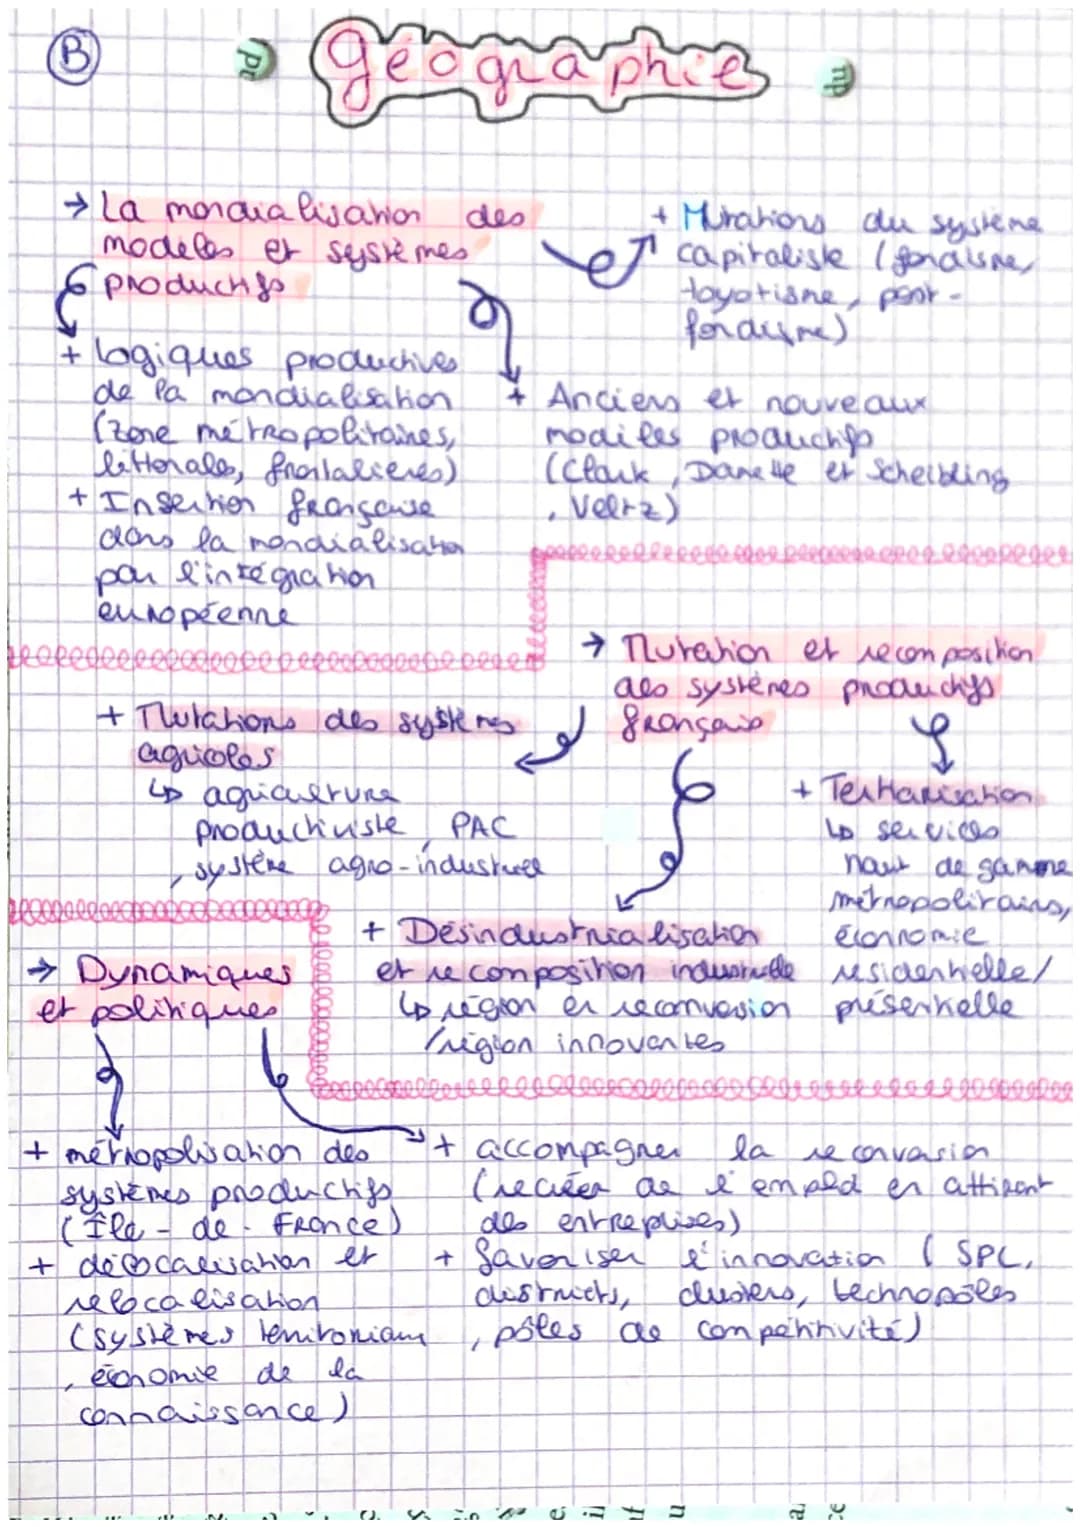 B
Géographie
→ La mondialisation des
modèles et systèmes
productifs
+ Mutations du système
capitaliste (fordisme,
toyotisme, post-
fordisme)
+ Logiques productives
de la mondialisation
(zone métropolitaines,
littorales, frontalières)
+ Insertion française
dans la mondialisation
par l'intégration
européenne
+ Anciens et nouveaux
modèles productifs
(Clark, Damette et Scheibling
, Veltz)
→ Mutation et recomposition
des systèmes productifs
français
+ Mutations des systèmes
agricoles
↳ agriculture
productiviste, PAC
, système agro-industriel
+ Tertiarisation
↳ services
haut de gamme
métropolitains,
économie
résidentielle/
présentielle
+ Désindustrialisation
et recomposition industrielle
↳ région en reconversion
/région innovantes
→ Dynamiques
et politiques
+ métropolisation des
systèmes productifs
(Île-de-France)
+ délocalisation et
relocalisation
(systèmes territoriaux
, économie de la
connaissance)
+ accompagner la reconversion
(recréer de l'emploi en attirant
des entreprises)
+ favoriser l'innovation (SPL,
districts, clusters, technopôles
, pôles de compétitivité)